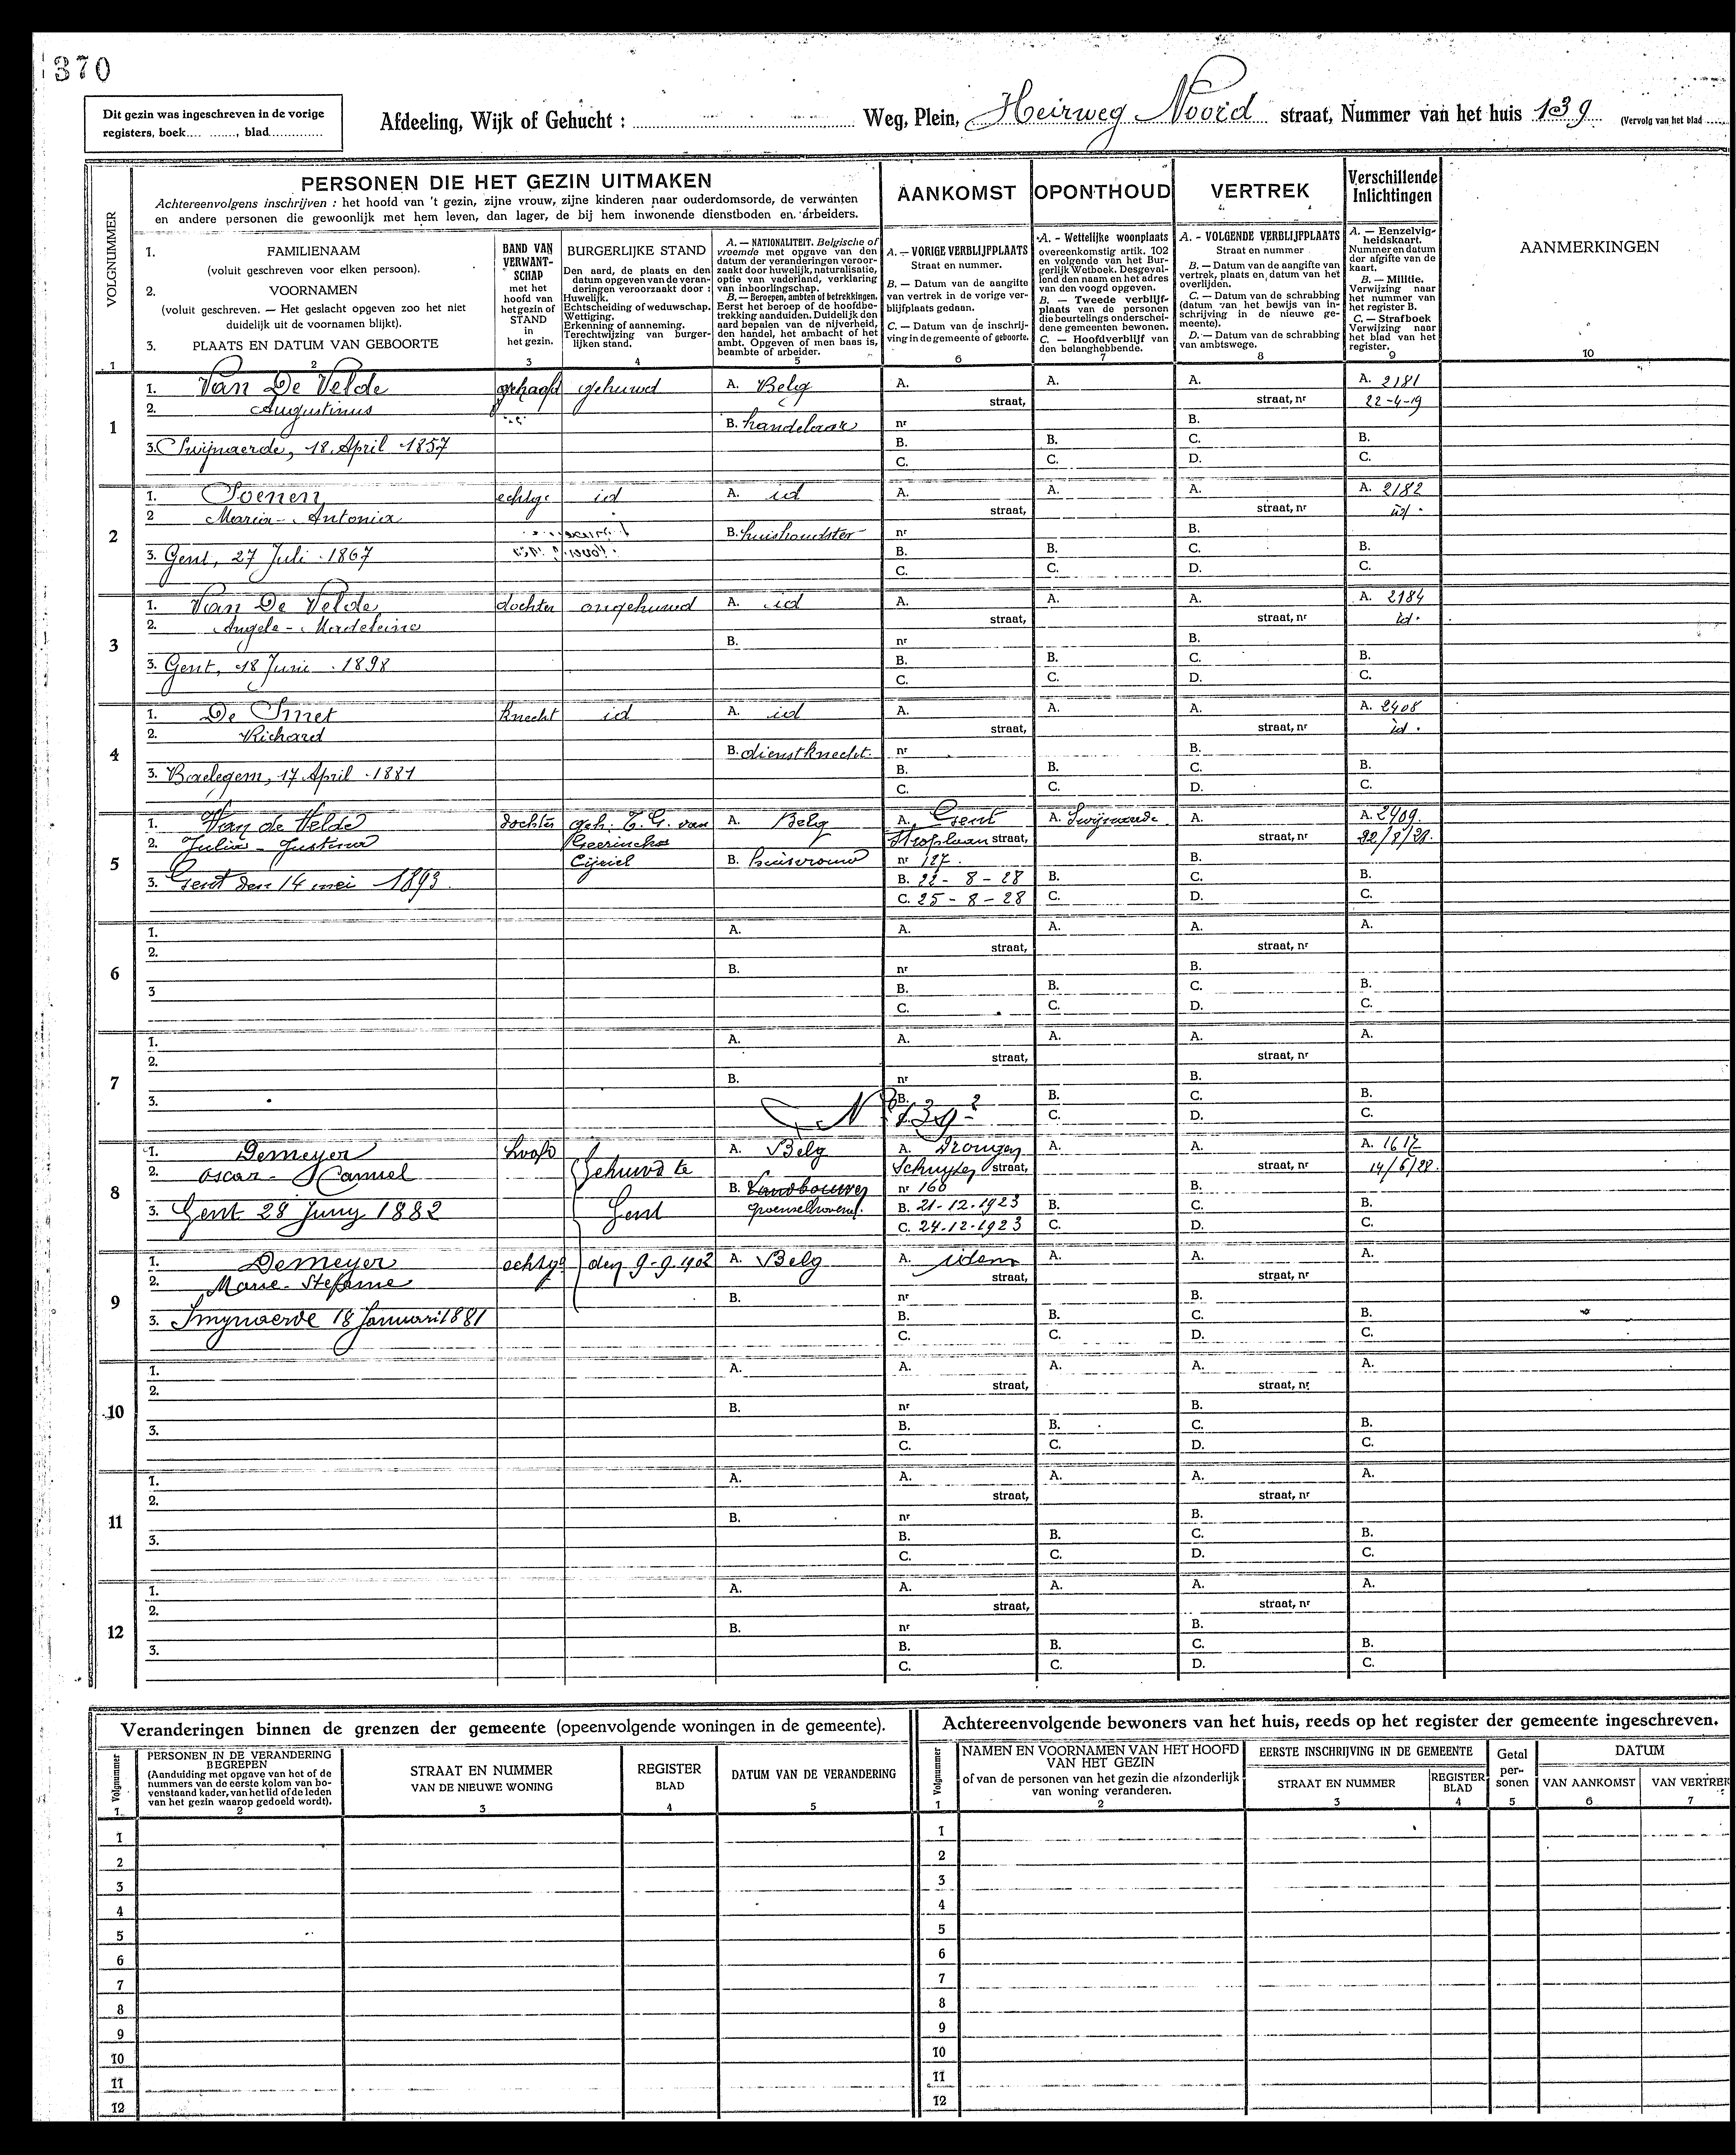 370
Dit gezin was ingeschreven in de vorige
registers, boek.... ........, blad.............
Afdeeling, Wijk of Gehucht : Weg, Plein, Heirweg Noord straat, Nummer van het huis 139 (Vervolg van het blad
VOLGNUMMER
PERSONEN DIE HET GEZIN UITMAKEN
Achtereenvolgens inschrijven : het hoofd van 't gezin, zijne vrouw, zijne kinderen naar ouderdomsorde, de verwanten
en andere personen die gewoonlijk met hem leven, dan lager, de bij hem inwonende dienstboden en arbeiders.
AANKOMST OPONTHOUD VERTREK
Verschillende
Inlichtingen
1. FAMILIENAAM
(voluit geschreven voor elken persoon).
2. VOORNAMEN
(voluit geschreven. — Het geslacht opgeven zoo het niet
duidelijk uit de voornamen blijkt).
3. PLAATS EN DATUM VAN GEBOORTE
BAND VAN
VERWANT-
SCHAP
met het
hoofd van
het gezin of
STAND
in
het gezin.
BURGERLIJKE STAND
Den aard, de plaats en den
datum opgeven van de veran-
deringen veroorzaakt door :
Huwelijk.
Echtscheiding of weduwschap.
Wettiging.
Erkenning of aanneming.
Terechtwijzing van burger-
lijken stand.
A. — NATIONALITEIT. Belgische of
vreemde met opgave van den
datum der veranderingen veroor-
zaakt door huwelijk, naturalisatie,
optie van vaderland, verklaring
van inboorlingschap.
B. — Beroepen, ambten of betrekkingen.
Eerst het beroep of de hoofdbe-
trekking aanduiden. Duidelijk den
aard bepalen van de nijverheid,
den handel, het ambacht of het
ambt. Opgeven of men baas is,
beambte of arbeider.
A. — VORIGE VERBLIJFPLAATS
Straat en nummer.
B. — Datum van de aangifte
van vertrek in de vorige ver-
blijfplaats gedaan.
C. — Datum van de inschrij-
ving in de gemeente of geboorte.
A. - Wettelijke woonplaats
overeenkomstig artik. 102
en volgende van het Bur-
gerlijk Wetboek. Desgeval-
lend den naam en het adres
van den voogd opgeven.
B. — Tweede verblijf-
plaats van de personen
die beurtelings onderschei-
dene gemeenten bewonen.
C. — Hoofdverblijf van
den belanghebbende.
A. - VOLGENDE VERBLIJFPLAATS
Straat en nummer
B. — Datum van de aangifte van
vertrek, plaats en datum van het
overlijden.
C. — Datum van de schrabbing
(datum van het bewijs van in-
schrijving in de nieuwe ge-
meente).
D. — Datum van de schrabbing
van ambtswege.
A. — Eenzelvig-
heidskaart.
Nummer en datum
der afgifte van de
kaart.
B. — Militie.
Verwijzing naar
het nummer van
het register B.
C. — Strafboek
Verwijzing naar
het blad van het
register.
AANMERKINGEN
1 2 3 4 5 6 7 8 9 10
1
1. Van De Velde gehuwd A. Belg A. A. A. A. 2181
2. Augustinus straat, straat, nr 22-4-19
B. handelaar nr B.
3. Swijnaerde, 18 April 1857 B. B. C. B.
C. C. D. C.
2
1. Soenen echtge id A. id A. A. A. A. 2182
2 Maria - Antonia straat, straat, nr id.
B. huishoudster nr B.
3. Gent, 27 Juli 1867 B. B. C. B.
C. C. D. C.
3
1. Van De Velde dochter ongehuwd A. id A. A. A. A. 2184
2. Angele - Madeleine straat, straat, nr id.
B. nr B.
3. Gent, 18 Juni 1898 B. B. C. B.
C. C. D. C.
4
1. De Smet knecht id A. id A. A. A. A. 2408
2. Richard straat, straat, nr id.
B. dienstknecht. nr B.
3. Baelegem, 17 April 1881 B. B. C. B.
C. C. D. C.
5
1. Van de Velde dochter geh. T. G. van A. Belg A. Gent A. Swijnaerde A. A. 2409
2. Julia - Justina Geerinckx Stroplaan straat, straat, nr 22/8/28.
Cijriel B. huisvrouw nr 127. B.
3. Gent den 14 mei 1893. B. 22 - 8 - 28 B. C. B.
C. 25 - 8 - 28 C. D. C.
6
1. A. A. A. A. A.
2. straat, straat, nr
B. nr B.
3 B. B. C. B.
C. C. D. C.
7
1. A. A. A. A. A.
2. straat, straat, nr
B. nr B.
3. B. B. C. B.
N° 139² C. D. C.
8
1. Demeyer hoofd gehuwd te A. Belg A. Drongen A. A. A. 1617
2. Oscar - Camiel straat, straat, nr 14/6/28.
B. Landbouwer nr 160 B.
3. Gent 28 Juny 1882 Gent B. 21-12-1923 B. C. B.
C. 24-12-1923 C. D. C.
9
1. Demeyer echtge den 9-9-1902 A. Belg A. idem A. A. A.
2. Marie - Stefanie straat, straat, nr
B. nr B.
3. Swynaerde 18 Januari 1881 B. B. C. B.
C. C. D. C.
10
1. A. A. A. A. A.
2. straat, straat, nr
B. nr B.
3. B. B. C. B.
C. C. D. C.
11
1. A. A. A. A. A.
2. straat, straat, nr
B. nr B.
3. B. B. C. B.
C. C. D. C.
12
1. A. A. A. A. A.
2. straat, straat, nr
B. nr B.
3. B. B. C. B.
C. C. D. C.
Veranderingen binnen de grenzen der gemeente (opeenvolgende woningen in de gemeente).
Volgnummer
PERSONEN IN DE VERANDERING
BEGREPEN
(Aanduiding met opgave van het of de
nummers van de eerste kolom van bo-
venstaand kader, van het lid of de leden
van het gezin waarop gedoeld wordt).
STRAAT EN NUMMER
VAN DE NIEUWE WONING
REGISTER
BLAD
DATUM VAN DE VERANDERING
1 2 3 4 5
1
2
3
4
5
6
7
8
9
10
11
12
Achtereenvolgende bewoners van het huis, reeds op het register der gemeente ingeschreven.
Volgnummer
NAMEN EN VOORNAMEN VAN HET HOOFD
VAN HET GEZIN
of van de personen van het gezin die afzonderlijk
van woning veranderen.
EERSTE INSCHRIJVING IN DE GEMEENTE
STRAAT EN NUMMER
REGISTER
BLAD
Getal
per-
sonen
DATUM
VAN AANKOMST VAN VERTREK
1 2 3 4 5 6 7
1
2
3
4
5
6
7
8
9
10
11
12